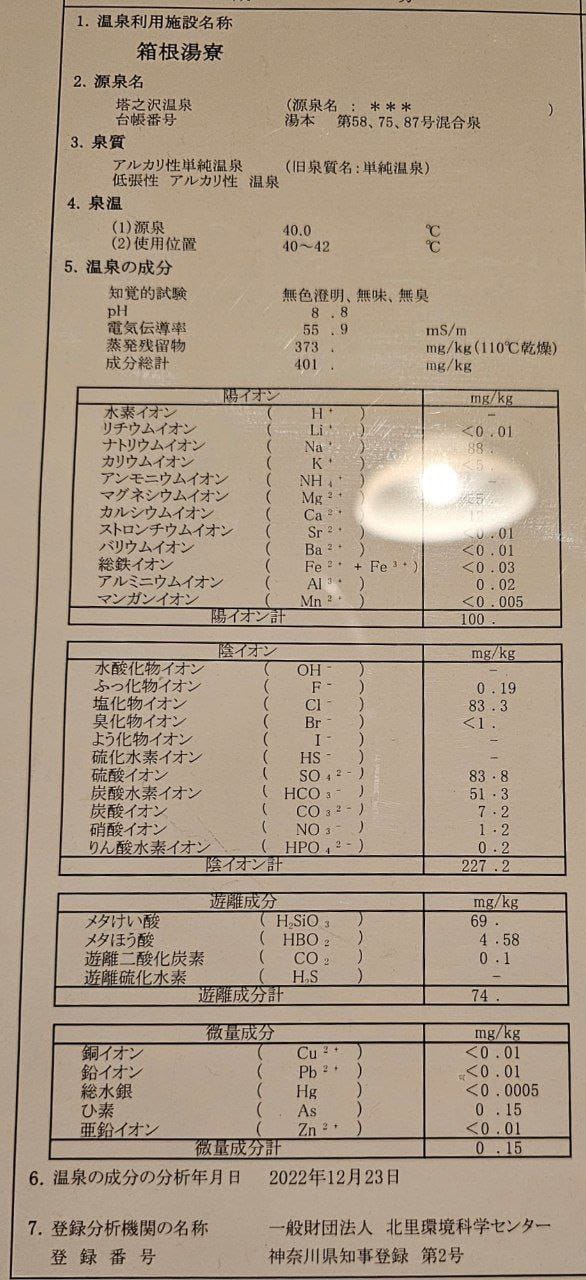 1. 温泉利用施設名称
箱根湯寮
2. 源泉名
塔之沢温泉 (源泉名 : *** )
台帳番号 湯本 第58、75、87号混合泉
3. 泉質
アルカリ性単純温泉 (旧泉質名:単純温泉)
低張性 アルカリ性 温泉
4. 泉温
(1)源泉 40.0 ℃
(2)使用位置 40~42 ℃
5. 温泉の成分
知覚的試験 無色澄明、無味、無臭
pH 8.8
電気伝導率 55.9 mS/m
蒸発残留物 373. mg/kg(110℃乾燥)
成分総計 401. mg/kg
陽イオン mg/kg
水素イオン ( H⁺ ) −
リチウムイオン ( Li⁺ ) <0.01
ナトリウムイオン ( Na⁺ ) 88.
カリウムイオン ( K⁺ ) <5.
アンモニウムイオン ( NH₄⁺ ) −
マグネシウムイオン ( Mg²⁺ )
カルシウムイオン ( Ca²⁺ )
ストロンチウムイオン ( Sr²⁺ ) <0.01
バリウムイオン ( Ba²⁺ ) <0.01
総鉄イオン ( Fe²⁺ + Fe³⁺ ) <0.03
アルミニウムイオン ( Al³⁺ ) 0.02
マンガンイオン ( Mn²⁺ ) <0.005
陽イオン計 100.
陰イオン mg/kg
水酸化物イオン ( OH⁻ ) −
ふっ化物イオン ( F⁻ ) 0.19
塩化物イオン ( Cl⁻ ) 83.3
臭化物イオン ( Br⁻ ) <1.
よう化物イオン ( I⁻ ) −
硫化水素イオン ( HS⁻ ) −
硫酸イオン ( SO₄²⁻ ) 83.8
炭酸水素イオン ( HCO₃⁻ ) 51.3
炭酸イオン ( CO₃²⁻ ) 7.2
硝酸イオン ( NO₃⁻ ) 1.2
りん酸水素イオン ( HPO₄²⁻ ) 0.2
陰イオン計 227.2
遊離成分 mg/kg
メタけい酸 ( H₂SiO₃ ) 69.
メタほう酸 ( HBO₂ ) 4.58
遊離二酸化炭素 ( CO₂ ) 0.1
遊離硫化水素 ( H₂S ) −
遊離成分計 74.
微量成分 mg/kg
銅イオン ( Cu²⁺ ) <0.01
鉛イオン ( Pb²⁺ ) <0.01
総水銀 ( Hg ) <0.0005
ひ素 ( As ) 0.15
亜鉛イオン ( Zn²⁺ ) <0.01
微量成分計 0.15
6. 温泉の成分の分析年月日 2022年12月23日
7. 登録分析機関の名称 一般財団法人 北里環境科学センター
登録番号 神奈川県知事登録 第2号